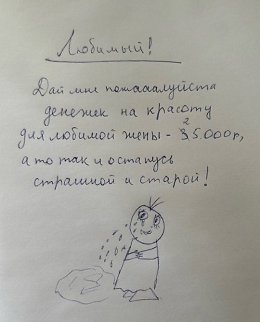 Любимый!
Дай мне пожаааалуйста
денежек на красоту
для любимой жены - 25.000р,
а то так и останусь
страшной и старой!